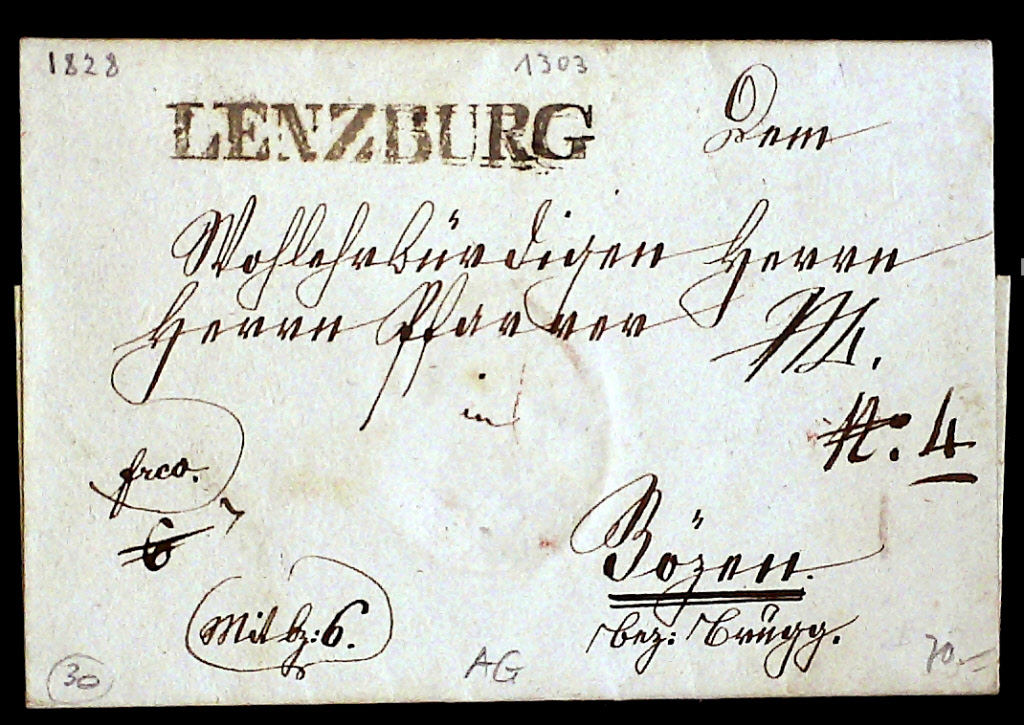 1828
1303
LENZBURG
Dem
Wohlehrwürdigen Herrn
Herrn Pfarrer
in
frco.
6
N: 4
Bözen.
Mit bz: 6.
bez: Brügg.
30
AG
70.-